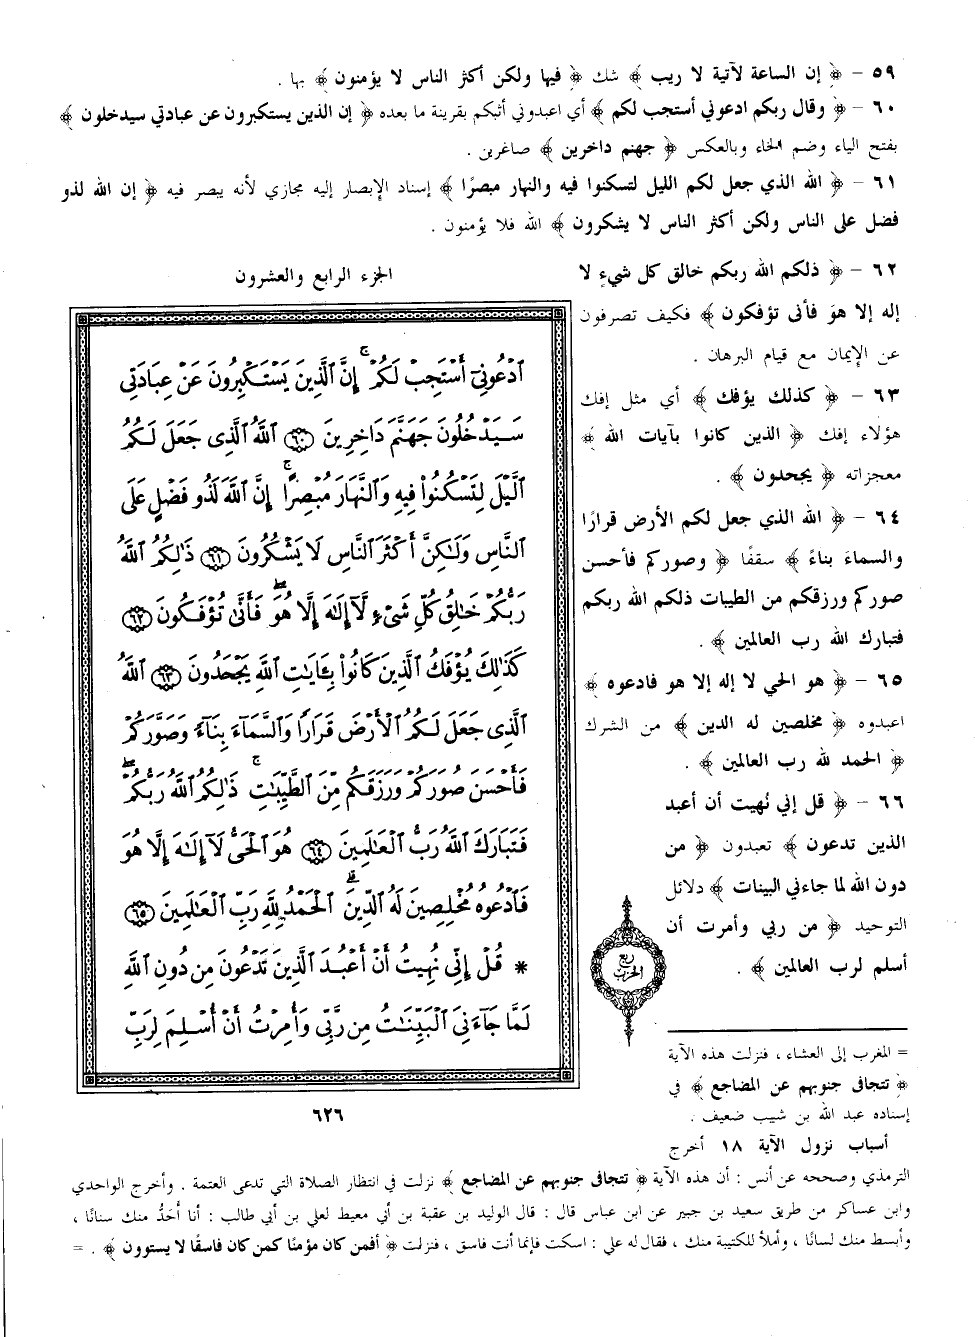 ٥٩ - ﴿ إن الساعة لآتية لا ريب ﴾ شك ﴿ فيها ولكن أكثر الناس لا يؤمنون ﴾ بها .
٦٠ - ﴿ وقال ربكم ادعوني أستجب لكم ﴾ أي اعبدوني أثبكم بقرينة ما بعده ﴿ إن الذين يستكبرون عن عبادتي سيدخلون ﴾
بفتح الياء وضم الخاء وبالعكس ﴿ جهنم داخرين ﴾ صاغرين .
٦١ - ﴿ الله الذي جعل لكم الليل لتسكنوا فيه والنهار مبصرًا ﴾ إسناد الإبصار إليه مجازي لأنه يبصر فيه ﴿ إن الله لذو
فضل على الناس ولكن أكثر الناس لا يشكرون ﴾ الله فلا يؤمنون .
٦٢ - ﴿ ذلكم الله ربكم خالق كل شيءٍ لا
إله إلا هوَ فأنى تؤفكون ﴾ فكيف تصرفون
عن الإيمان مع قيام البرهان .
٦٣ - ﴿ كذلك يؤفك ﴾ أي مثل إفك
هؤلاء إفك ﴿ الذين كانوا بآيات الله ﴾
معجزاته ﴿ يجحدون ﴾ .
٦٤ - ﴿ الله الذي جعل لكم الأرض قرارًا
والسماءَ بناءً ﴾ سقفًا ﴿ وصوركم فأحسن
صوركم ورزقكم من الطيبات ذلكم الله ربكم
فتبارك الله رب العالمين ﴾ .
٦٥ - ﴿ هو الحي لا إله إلا هو فادعوه ﴾
اعبدوه ﴿ مخلصين له الدين ﴾ من الشرك
﴿ الحمد لله رب العالمين ﴾ .
٦٦ - ﴿ قل إني نُهيت أن أعبد
الذين تدعون ﴾ تعبدون ﴿ من
دون الله لما جاءني البينات ﴾ دلائل
التوحيد ﴿ من ربي وأمرت أن
أسلم لرب العالمين ﴾ .
الجزء الرابع والعشرون
ٱدْعُونِىٓ أَسْتَجِبْ لَكُمْ ۚ إِنَّ ٱلَّذِينَ يَسْتَكْبِرُونَ عَنْ عِبَادَتِى
سَيَدْخُلُونَ جَهَنَّمَ دَاخِرِينَ ﴿٦٠﴾ ٱللَّهُ ٱلَّذِى جَعَلَ لَكُمُ
ٱلَّيْلَ لِتَسْكُنُوا۟ فِيهِ وَٱلنَّهَارَ مُبْصِرًا ۚ إِنَّ ٱللَّهَ لَذُو فَضْلٍ عَلَى
ٱلنَّاسِ وَلَـٰكِنَّ أَكْثَرَ ٱلنَّاسِ لَا يَشْكُرُونَ ﴿٦١﴾ ذَٰلِكُمُ ٱللَّهُ
رَبُّكُمْ خَـٰلِقُ كُلِّ شَىْءٍ لَّآ إِلَـٰهَ إِلَّا هُوَ ۖ فَأَنَّىٰ تُؤْفَكُونَ ﴿٦٢﴾
كَذَٰلِكَ يُؤْفَكُ ٱلَّذِينَ كَانُوا۟ بِـَٔايَـٰتِ ٱللَّهِ يَجْحَدُونَ ﴿٦٣﴾ ٱللَّهُ
ٱلَّذِى جَعَلَ لَكُمُ ٱلْأَرْضَ قَرَارًا وَٱلسَّمَآءَ بِنَآءً وَصَوَّرَكُمْ
فَأَحْسَنَ صُوَرَكُمْ وَرَزَقَكُم مِّنَ ٱلطَّيِّبَـٰتِ ۚ ذَٰلِكُمُ ٱللَّهُ رَبُّكُمْ ۖ
فَتَبَارَكَ ٱللَّهُ رَبُّ ٱلْعَـٰلَمِينَ ﴿٦٤﴾ هُوَ ٱلْحَىُّ لَآ إِلَـٰهَ إِلَّا هُوَ
فَٱدْعُوهُ مُخْلِصِينَ لَهُ ٱلدِّينَ ۗ ٱلْحَمْدُ لِلَّهِ رَبِّ ٱلْعَـٰلَمِينَ ﴿٦٥﴾
* قُلْ إِنِّى نُهِيتُ أَنْ أَعْبُدَ ٱلَّذِينَ تَدْعُونَ مِن دُونِ ٱللَّهِ
لَمَّا جَآءَنِىَ ٱلْبَيِّنَـٰتُ مِن رَّبِّى وَأُمِرْتُ أَنْ أُسْلِمَ لِرَبِّ
ربع
الحزب
٦٢٦
= المغرب إلى العشاء ، فنزلت هذه الآية
﴿ تتجافى جنوبهم عن المضاجع ﴾ في
إسناده عبد الله بن شبيب ضعيف .
أسباب نزول الآية ١٨ أخرج
الترمذي وصححه عن أنس : أن هذه الآية ﴿ تتجافى جنوبهم عن المضاجع ﴾ نزلت في انتظار الصلاة التي تدعى العتمة . وأخرج الواحدي
وابن عساكر من طريق سعيد بن جبير عن ابن عباس قال : قال الوليد بن عقبة بن أبي معيط لعلي بن أبي طالب : أنا أَحَدُّ منك سنانًا ،
وأبسط منك لسانًا ، وأملأ للكتيبة منك ، فقال له علي : اسكت فإنما أنت فاسق ، فنزلت ﴿ أفمن كان مؤمنًا كمن كان فاسقًا لا يستوون ﴾ . =